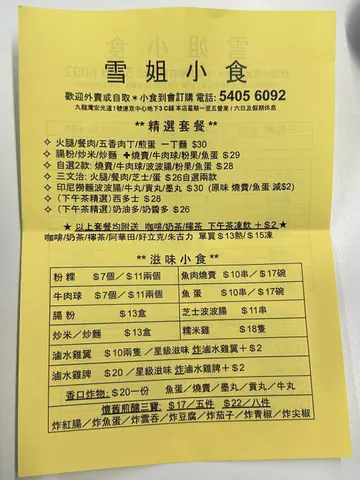 雪姐小食
歡迎外賣或自取＊小食到會訂購 電話: 5405 6092
九龍灣宏光道1號億京中心地下3C舖 本店星期一至五營業 / 六日及假期休息
** 精選套餐 **
✧ 火腿/餐肉/五香肉丁/煎蛋 一丁麵 $30
✧ 腸粉/炒米/炒麵 ✚燒賣/牛肉球/粉果/魚蛋 $29
✧ 自選2款: 燒賣/牛肉球/波波腸/粉果/魚蛋 $28
✧ 三文治: 火腿/餐肉/芝士/蛋 $26自選兩款
✧ 印尼撈麵波波腸/牛丸/貢丸/墨丸 $30 (原味 燒賣/魚蛋 減$2)
✧ (下午茶精選) 西多士 $28
✧ (下午茶精選) 奶油多/奶醬多 $26
★ 以上套餐均附送 咖啡/奶茶/檸茶 下午茶凍飲 + $2 ★
咖啡/奶茶/檸茶/阿華田/好立克/朱古力 單買 $13熱/$15凍
** 滋味小食 **
粉粿 $7個/$11兩個 魚肉燒賣 $10串/$17碗
牛肉球 $7個/$11兩個 魚蛋 $10串/$17碗
腸粉 $13盒 芝士波波腸 $11串
炒米/炒麵 $13盒 糯米雞 $18隻
滷水雞翼 $10兩隻 /星級滋味 炸滷水雞翼+$2
滷水雞髀 $20 /星級滋味 炸滷水雞髀+$2
香口炸物: $20一份 魚蛋/燒賣/墨丸/貢丸/牛丸
懷舊煎釀三寶: $17/五件 $22/八件
炸紅腸/炸魚蛋/炸雲吞/炸豆腐/炸茄子/炸青椒/炸尖椒